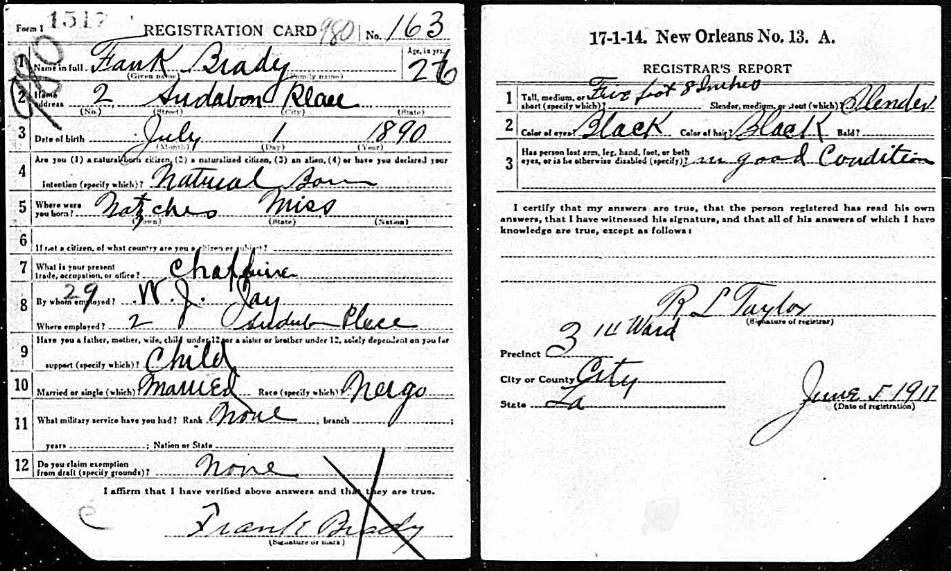 Form 1 1517 REGISTRATION CARD 980 No. 163
980
1 Name in full Fank Brady Age, in yrs. 26
(Given name) (Family name)
2 Home address 2 Audabon Place
(No.) (Street) (City) (State)
3 Date of birth July 1 1890
(Month) (Day) (Year)
4 Are you (1) a natural-born citizen, (2) a naturalized citizen, (3) an alien, (4) or have you declared your
intention (specify which)? Natural Born
5 Where were you born? Natches Miss
(Town) (State) (Nation)
6 If not a citizen, of what country are you a citizen or subject?
7 What is your present trade, occupation, or office? Chaffure
29
8 By whom employed? W. J. Jay
Where employed? 2 Audubn Place
9 Have you a father, mother, wife, child under 12, or a sister or brother under 12, solely dependent on you for
support (specify which)? Child
10 Married or single (which)? Married Race (specify which)? Nergo
11 What military service have you had? Rank None ; branch ;
years ; Nation or State
12 Do you claim exemption from draft (specify grounds)? None
I affirm that I have verified above answers and that they are true.
C
Frank Brady
(Signature or mark)
17-1-14. New Orleans No. 13. A.
REGISTRAR'S REPORT
1 Tall, medium, or short (specify which)? Five foot 8 Inches Slender, medium, or stout (which)? Slender
2 Color of eyes? Black Color of hair? Black Bald?
3 Has person lost arm, leg, hand, foot, or both eyes, or is he otherwise disabled (specify)? in good Condition
I certify that my answers are true, that the person registered has read his own
answers, that I have witnessed his signature, and that all of his answers of which I have
knowledge are true, except as follows:
R L Taylor
(Signature of registrar)
Precinct 3 14 Ward
City or County City
State La
June 5 1917
(Date of registration)